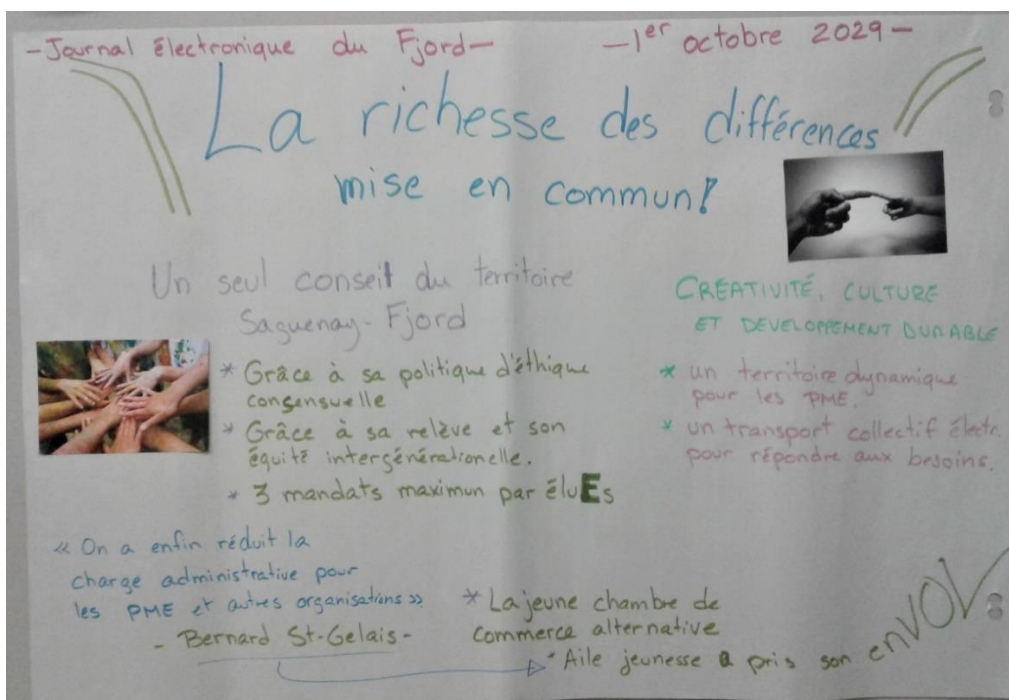 - Journal électronique du Fjord - - 1er octobre 2029 -
La richesse des différences
mise en commun!
Un seul conseil du territoire
Saguenay-Fjord
* Grâce à sa politique d'éthique
consensuelle
* Grâce à sa relève et son
équité intergénérationelle.
* 3 mandats maximun par éluEs
CRÉATIVITÉ, CULTURE
ET DEVELOPPEMENT DURABLE
* un territoire dynamique
pour les PME.
* un transport collectif électr.
pour répondre aux besoins.
« On a enfin réduit la
charge administrative pour
les PME et autres organisations »
- Bernard St-Gelais -
* La jeune chambre de
commerce alternative
* Aile jeunesse a pris son enVOL